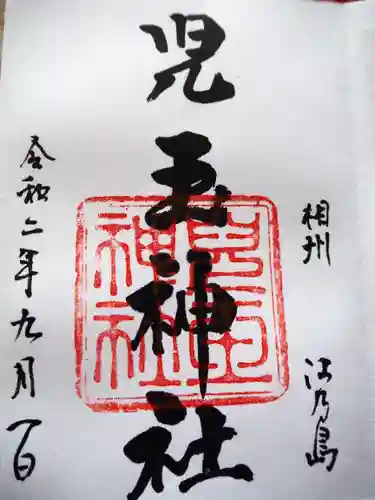 相州
江乃島
児玉神社
児玉神社
令和二年九月一日